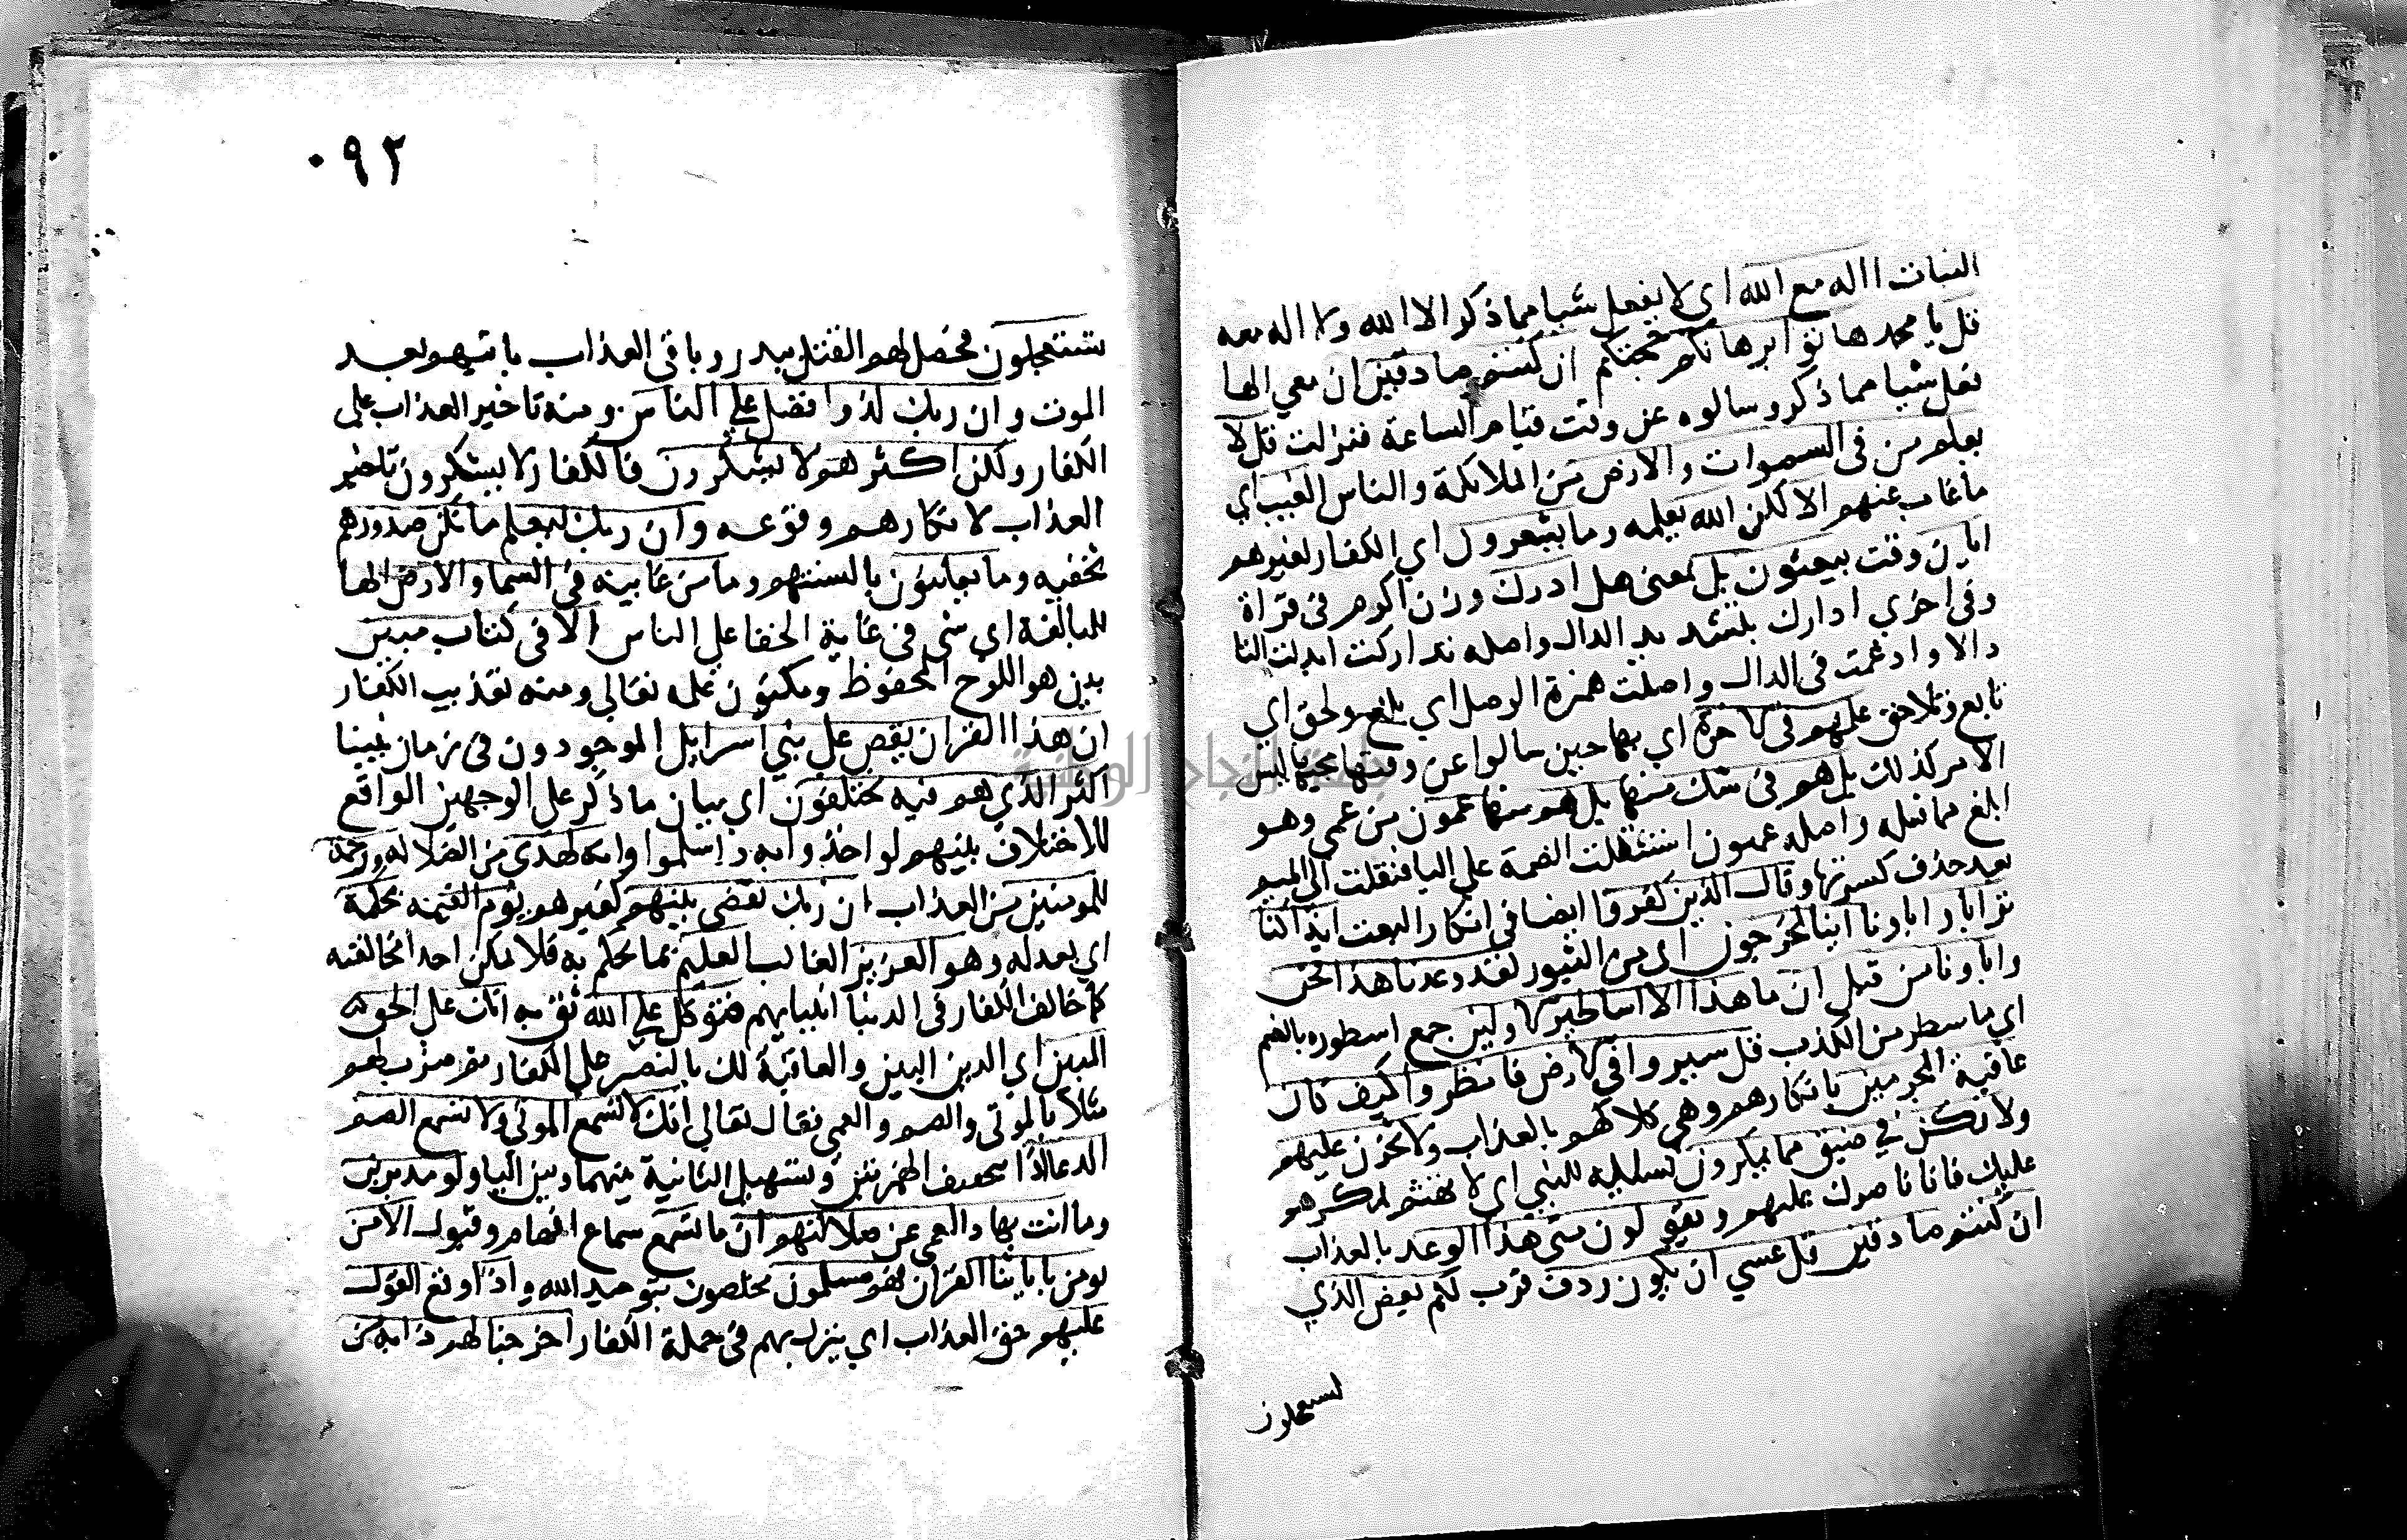 النبات االه مع الله اي لا يفعل شيا مما ذكر الا الله ولا اله معه
قل يا محمد هاتوا برهانكم حجتكم ان كنتم صادقين ان معي الها
فعل شيا مما ذكر وسالوه عن وقت قيام الساعة فنزلت قل لا
يعلم من في السموات والارض من الملائكة والناس الغيب اي
ما غاب عنهم الا لكن الله يعلمه وما يشعرون اي الكفار لغيرهم
ايان وقت يبعثون بل بمعنى هل ادرك وزن اكرم في قراة
وفي اخري ادارك بتشديد الدال واصله تدارك ابدلت التا
دالا وادغمت في الدال واصلت همزة الوصل اي بلغ ولحق اي
تابع وتلاحق علمهم في الاخرة اي بها حين سالوا عن وقت مجيها ليس
الامر كذلك بل هم في شك منها بل هم منها عمون من عمي وهو
ابلغ مما قبله واصله عميون استثقلت الضمة علي اليا فنقلت الي الميم
بعد حذف كسرتها وقال الذين كفروا ايضا في انكار البعث ايذا كنا
ترابا واباونا اينا لمخرجون اي من القبور لقد وعدنا هذا نحن
واباونا من قبل ان ما هذا الا اساطير الاولين جمع اسطوره بالضم
اي ما سطر من الكذب قل سيروا في الارض فانظروا كيف كان
عاقبة المجرمين بانكارهم وهي هلاكهم بالعذاب ولا تحزن عليهم
ولا تكن في ضيق مما يمكرون تسلية للنبي اي لا تهتم لمكرهم
عليك فانا ناصرك عليهم ويقولون متى هذا الوعد بالعذاب
ان كنتم صادقين قل عسي ان يكون ردف قرب لكم بعض الذي
تستعجلون
٠٩٢
تستعجلون فحصل لهم القتل ببدر وباقي العذاب ياتيهم بعد
الموت وان ربك لذوا فضل علي الناس ومنه تاخير العذاب علي
الكفار ولكن اكثرهم لا يشكرون فالكفار لا يشكرون تاخير
العذاب لانكارهم وقوعه وان ربك ليعلم ما تكن صدورهم
تخفيه وما يعلنون بالسنتهم وما من غايبة في السما والارض الها
للمبالغة اي شي في غاية الخفا علي الناس الا في كتاب مبين
بين هو اللوح المحفوظ ومكنون علمه تعالي ومنه تعذيب الكفار
ان هذا القران يقص علي بني اسرايل الموجودون في زمان نبينا
اكثر الذي هم فيه يختلفون اي ببيان ما ذكر علي الوجهين الواقع
للاختلاف بينهم لو اخذوا به واسلموا وانه لهدي من الضلاله ورحمة
للمومنين من العذاب ان ربك يقضي بينهم كغيرهم يوم القيمة بحكمة
اي بعدله وهو العزيز الغالب العليم بما يحكم به فلا يمكن احد مخالفته
كما خالف الكفار في الدنيا انبيايهم فتوكل علي الله ثق به انك علي الحق
المبين اي الدين البين والعاقبة لك بالنصر علي الكفار ثم ضرب لهم
مثلا بالموتي والصم والعمي فقال تعالي انك لا تسمع الموتي ولا تسمع الصم
الدعا اذا بتحقيف الهمزتين وتسهيل الثانية بينهما وبين اليا ولو مدبرين
وما انت بهاد العمي عن ضلالتهم ان ما تسمع سماع افهام وقبول الا من
يومن باياتنا القران فهم مسلمون مخلصون بتوحيد الله واذا وقع القول
عليهم حق العذاب اي ينزل بهم في جملة الكفار اخرجنا لهم دابة من
جامعة النجاح الوطنية